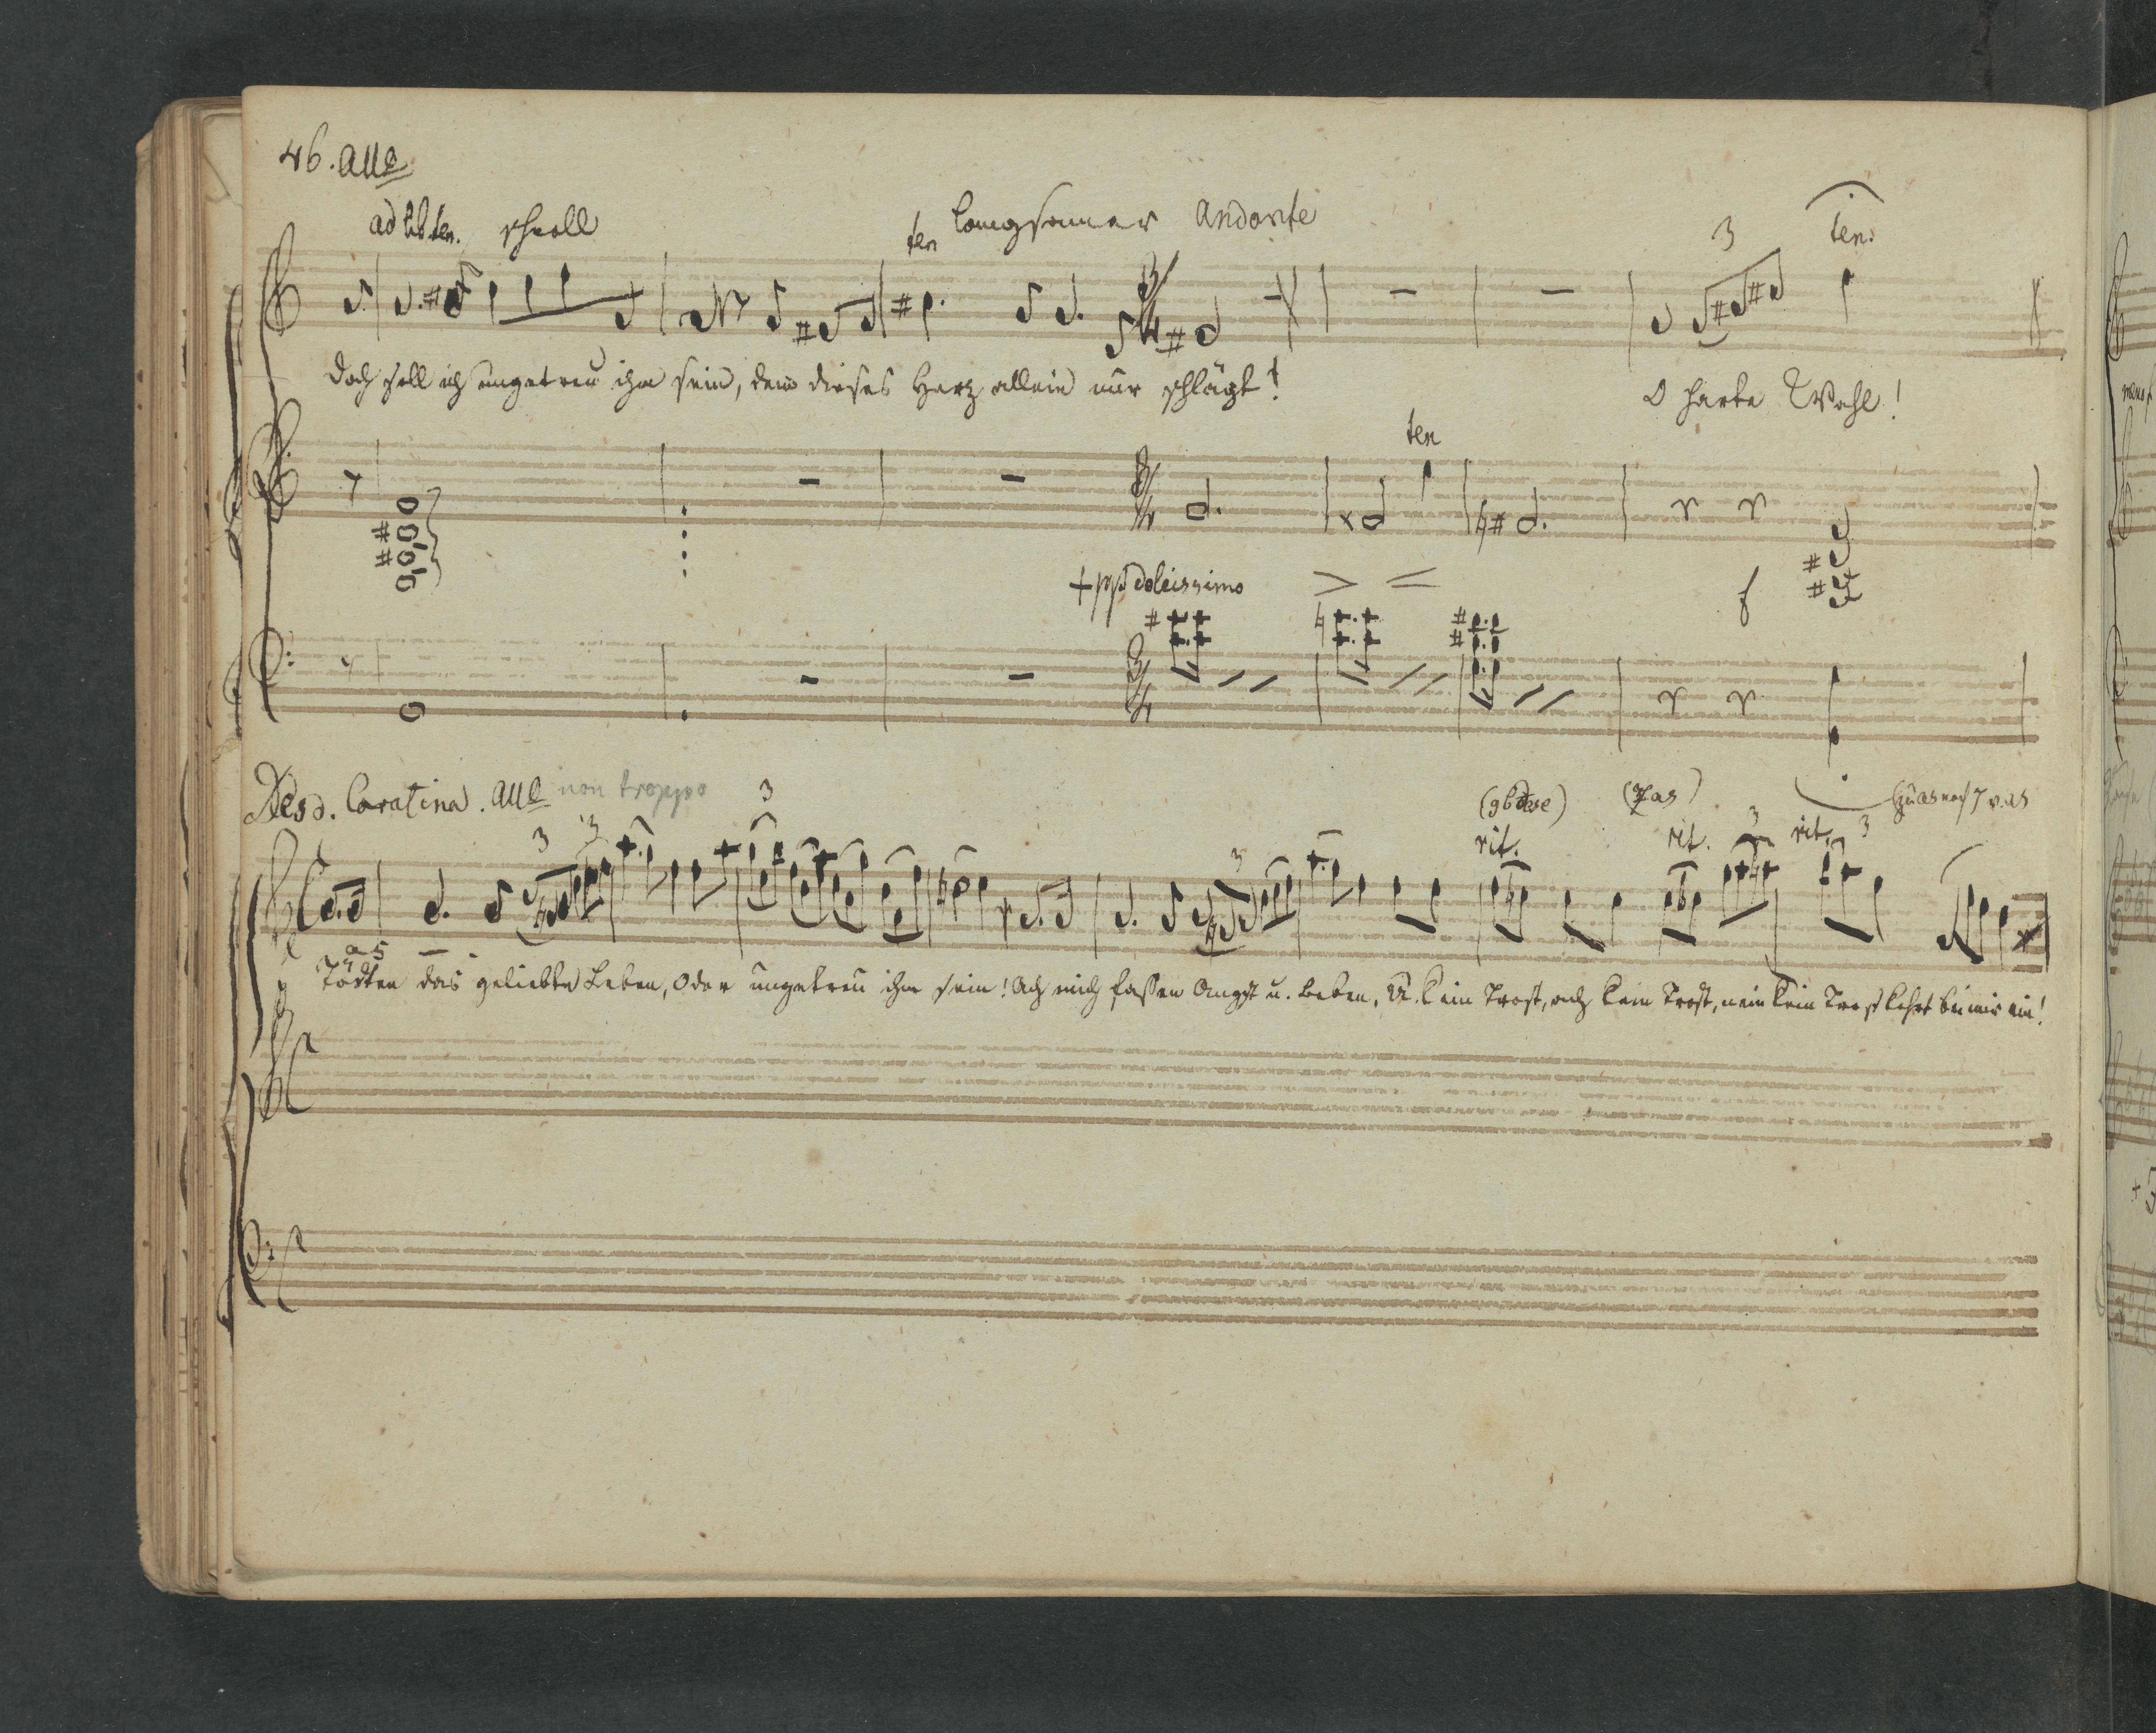 46. All?
ad lib ten. schnell ten langsamer Andante 3 ten.
Doch soll ich ungetreu ihm sein, dem dieses Herz allein nur schlägt!
O harte Wahl!
ten
+ pp dolcissimo
f
Desd. Cavatina. All? non troppo 3
3 3 3 rit. rit. 3 rit. 3
as
Tödten das geliebte Leben, oder ungetreu ihm sein! Ach mich faßen Angst u. Beben, U. kein Trost, ach kein Trost, nein kein Trost kehrt bei mir ein!